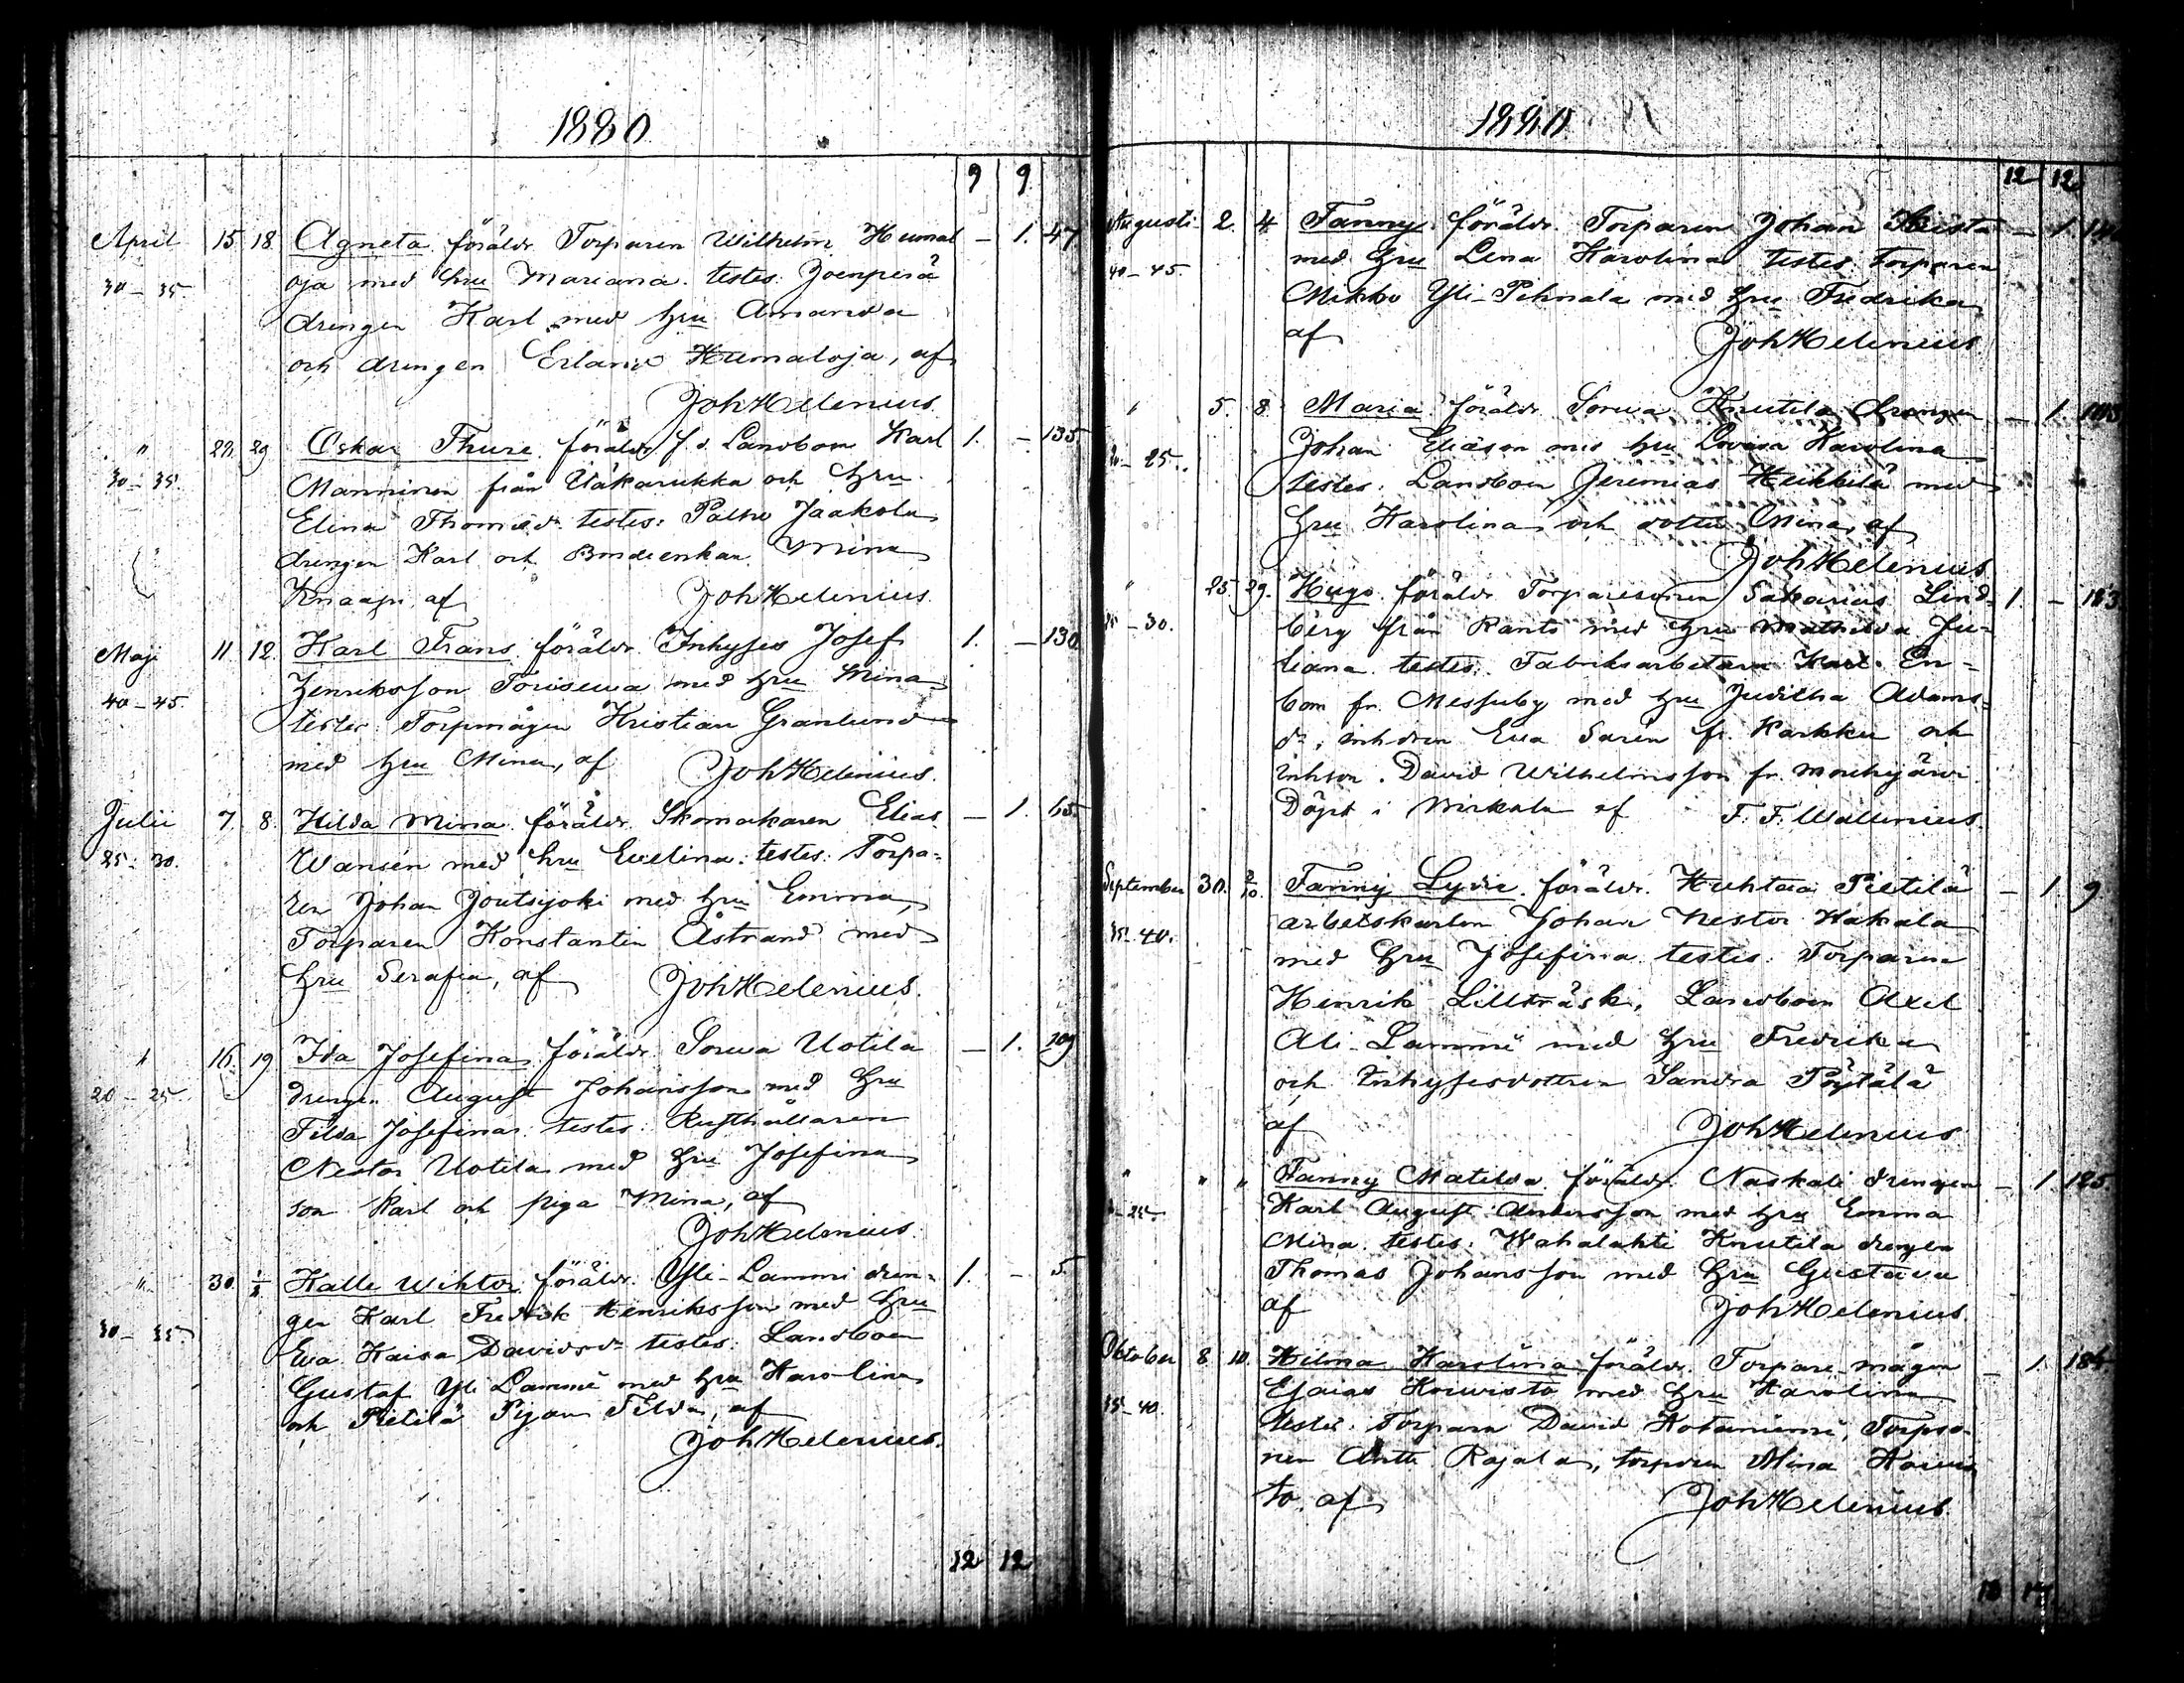 1880
9 9
April 15. 18. Agneta. föräldr. Torparen Wilhelm Humal — 1. 47
30 — 35. oja med hru Mariana. testes. Joenperä
drengen Karl med hru Amanda
och drengen Erland Humaloja, af
Joh Helenius.
" 22. 29. Oskar Thure. föräldr. f.d. Landboen Karl 1. — 135.
30 — 35. Manninen från och hru
Elina Thomasd. testes: Palho Jaakola
drengen Karl och Bondeenkan Mina
Knaapi, af Joh Helenius.
Maji 11. 12. Karl Frans. föräldr. Inhyses Josef 1. — 130.
40 — 45. Henriksson med hru Mina
testes. Torpmågen Kristian Granlund
med hru Mina, af Joh Helenius.
Julii 7. 8. Hilda Mina. föräldr. Skomakaren Elias — 1. 65.
25 - 30. Wansén med hru Evelina. testes. Torpa-
ren Johan Joutsijoki med hru Emma,
Torparen Konstantin Åstrand med
hru Serafia, af Joh Helenius.
" 16. 19. Ida Josefina. föräldr. Sorva Uotila — 1. 109
20 — 25. drengen August Johansson med hru
Tilda Josefina. testes. Rusthållaren
Nestor Uotila med hru Josefina
son Karl och piga Mina, af
Joh Helenius.
" 30. 1/8 Kalle Wiktor. föräldr. Yli-Lammi dren- 1. — 5.
30 — 35. gen Karl Fredrik Henriksson med hru
Eva Kaisa Davidsdr testes. Landboen
Gustaf Yli Lammi med hru Karolina
och Pietilä Pigan Tilda, af
Joh Helenius.
12 12
1880
12 12
Augusti 2. 4. Fanny. föräldr. Torparen Johan — 1.
40 — 45. med hru Lena Karolina testes. Torparen
Mikko Yli-Pihnala med hru Fredrika
af Joh Helenius.
" 5. 8. Maria. föräldr. Sorva Knutila drengen — 1.
25. Johan Eliasson med hru Lovisa Karolina
testes. Landboen Jeremias Heikkilä med
hru Karolina och dotter Mina, af
Joh Helenius
" 25. 29. Hugo. föräldr. Torparesonen Sakarias Lind- 1. —
— 30. berg från Kanto med hru Mathilda Ju-
liana. testes. Fabriksarbetaren Karl En-
bom fr. Messuby med hru Juditha Adams-
dr, Eva Sarén fr. Karkku och
David Wilhelmsson fr. Mouhijärvi.
Döpt i af F. F. Wallenius.
September 30. 2/10. Fanny Lydia. föräldr. Huhtaa Pietilä — 1. 9
35 - 40. arbetskarlen Johan Nestor Hakala
med hru Josefina. testes. Torparen
Henrik Lillträsk, Landboen Axel
Ali-Lammi med hru Fredrika
och Inhysesdottren Sandra Pöytälä
af Joh Helenius
" " " Fanny Matilda. föräldr. Naskali drengen — 1. 125
— 25. Karl August Andersson med hru Emma
Mina. testes. Wahalahti Knutila drengen
Thomas Johansson med hru Gustava
af Joh Helenius.
Oktober 8. 10. Hilma Karolina. föräldr. Torpare-mågen — 1.
35 — 40. Esaias Koivisto med hru Karolina
testes. Torparn David Kotaniemi, Torpso-
nen Antti Rajala, torpdren Mina Koivis
to. af Joh Helenius.